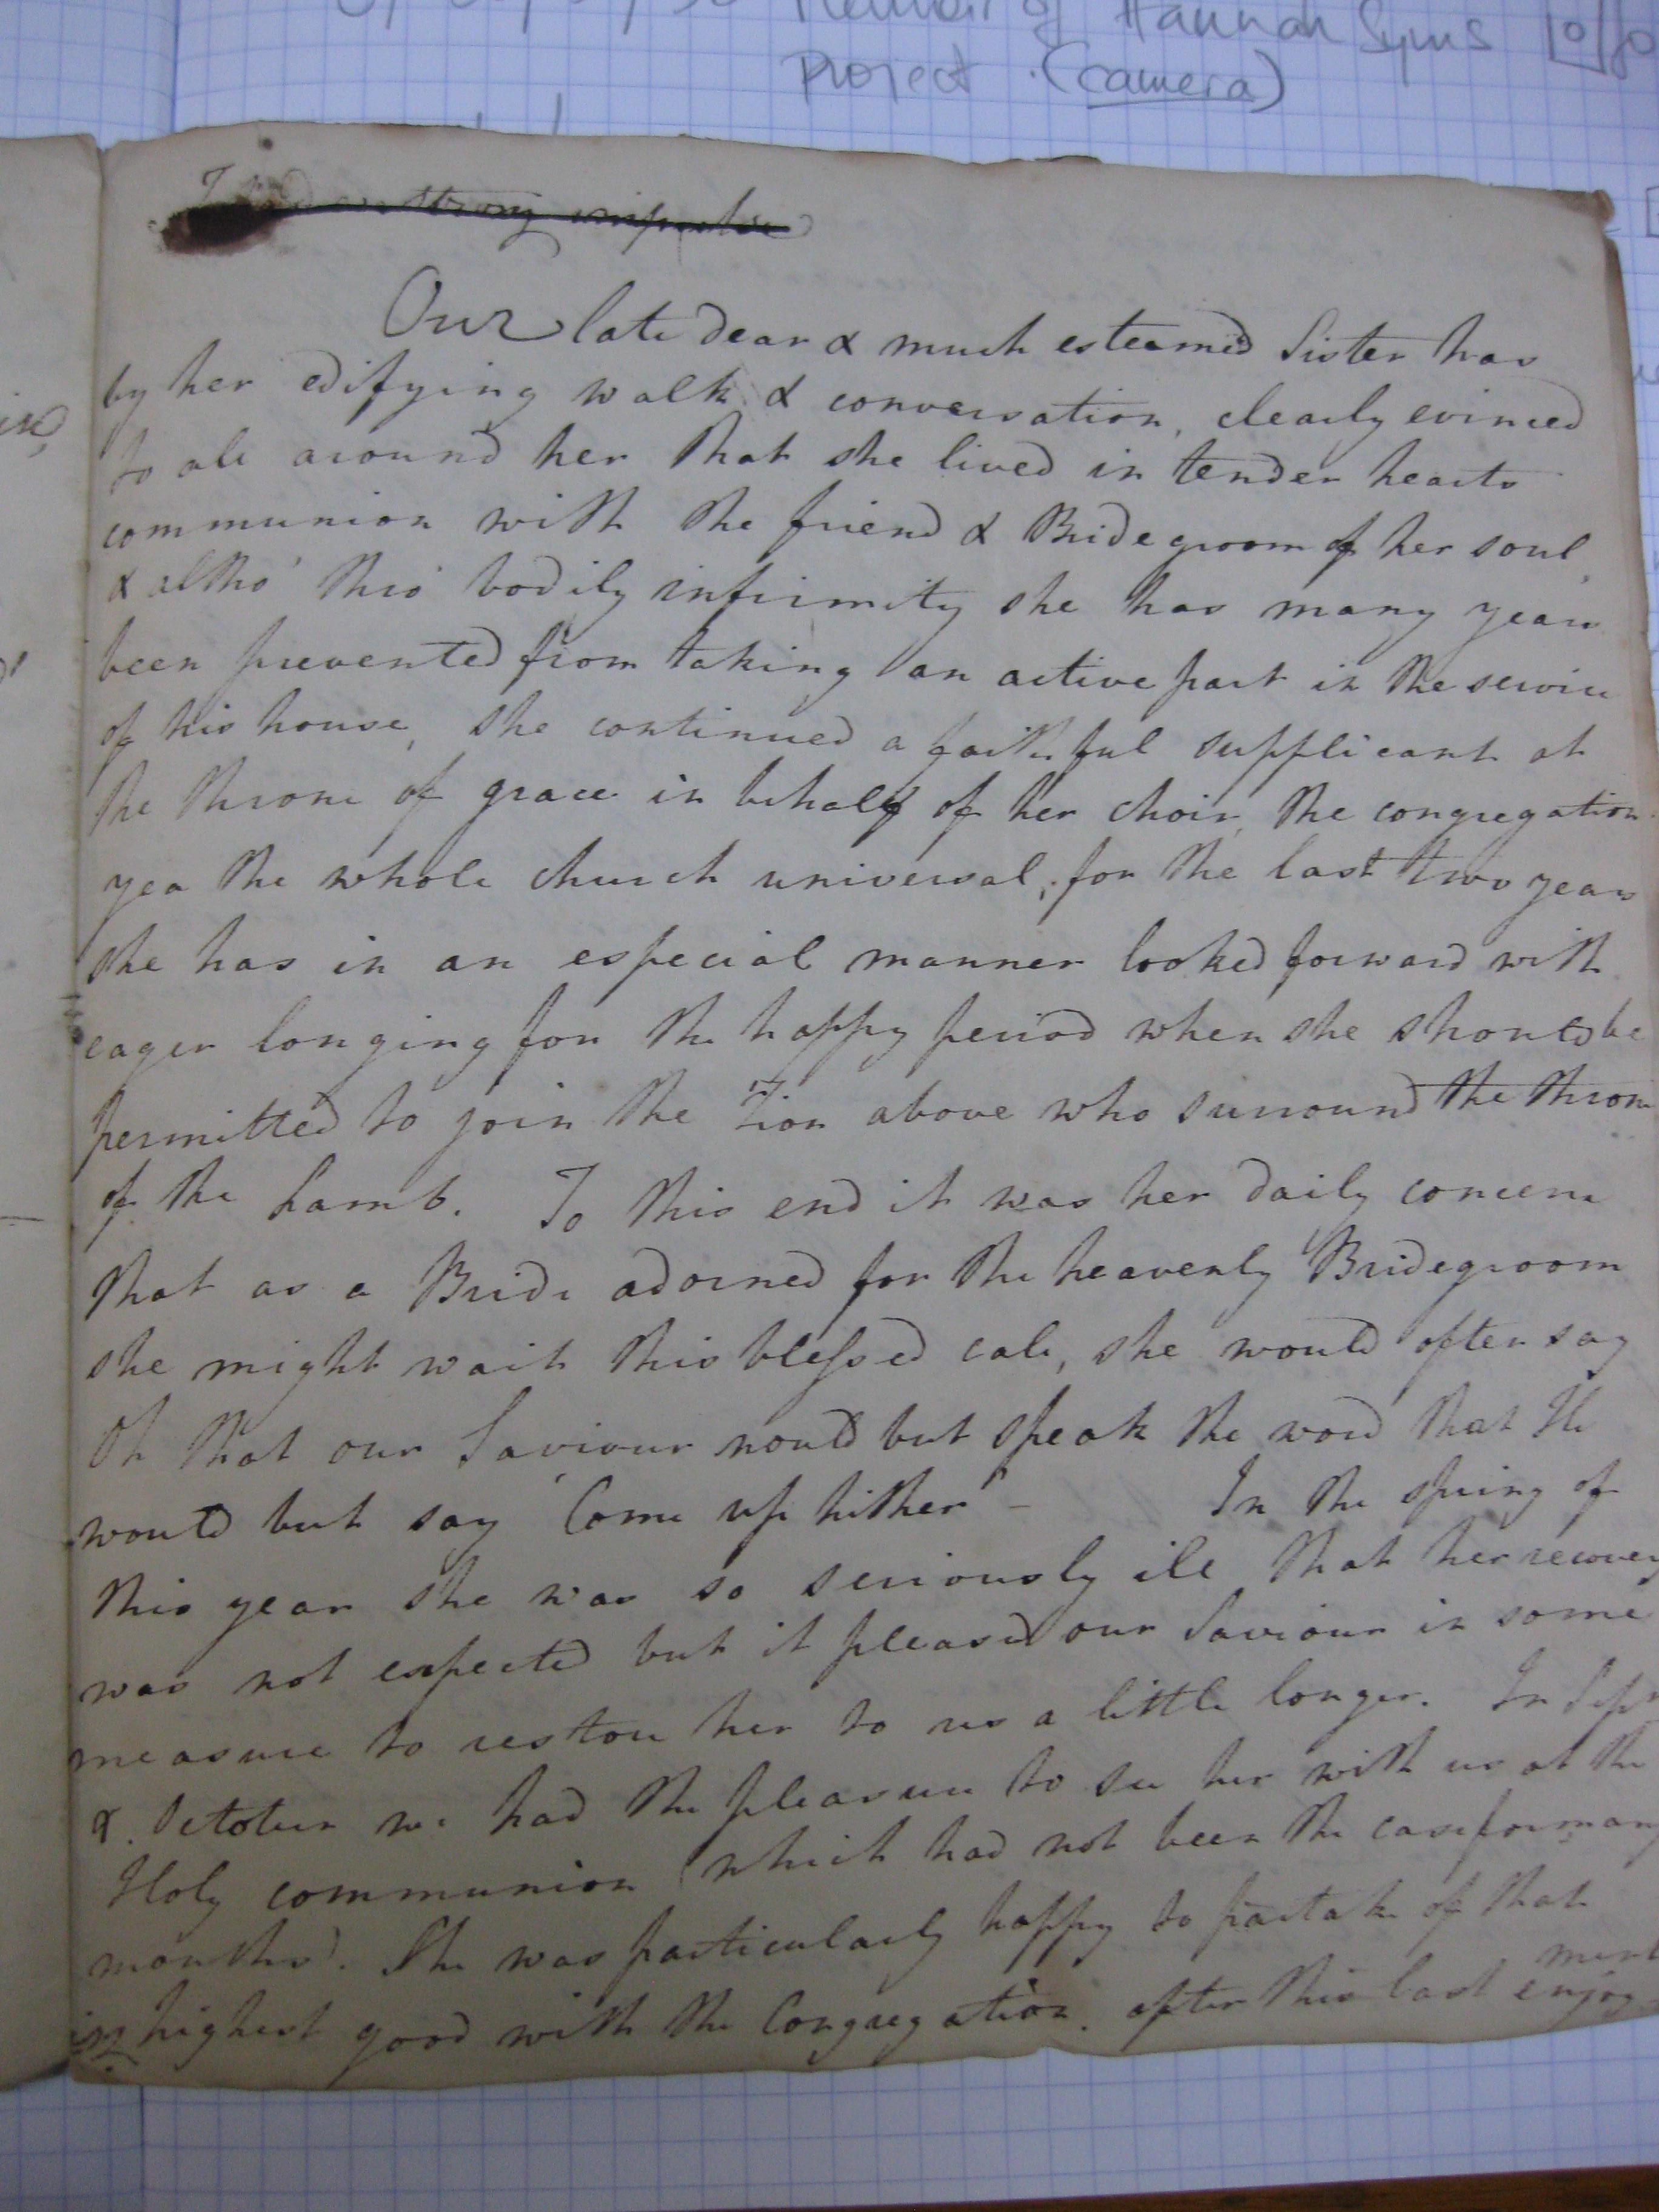 Memoir of Hannah Syms
Project (camera)
strong impulse
Our late dear & much esteemed Sister has
by her edifying walk & conversation, clearly evinced
to all around her that she lived in tender hearts
communion with the friend & Bridegroom of her soul,
& altho' thro' bodily infirmity she has many years
been prevented from taking an active part in the service
of his house, she continued a faithful supplicant at
the throne of grace in behalf of her choir, the congregation
yea the whole church universal, for the last two years
she has in an especial manner looked forward with
eager longing for the happy period when she should be
permitted to join the Zion above who surround the throne
of the Lamb. To this end it was her daily concern
that as a Bride adorned for the heavenly Bridegroom
she might wait this blessed call, she would often say
Oh that our Saviour would but speak the word that He
would but say "Come up hither" - In the spring of
this year she was so seriously ill that her recovery
was not expected but it pleased our Saviour in some
measure to restore her to us a little longer. In Sepr
& October we had the pleasure to see her with us at the
Holy communion (which had not been the case for many
months). She was particularly happy to partake of that
highest good with the Congregation. after this last enjoy-
ment